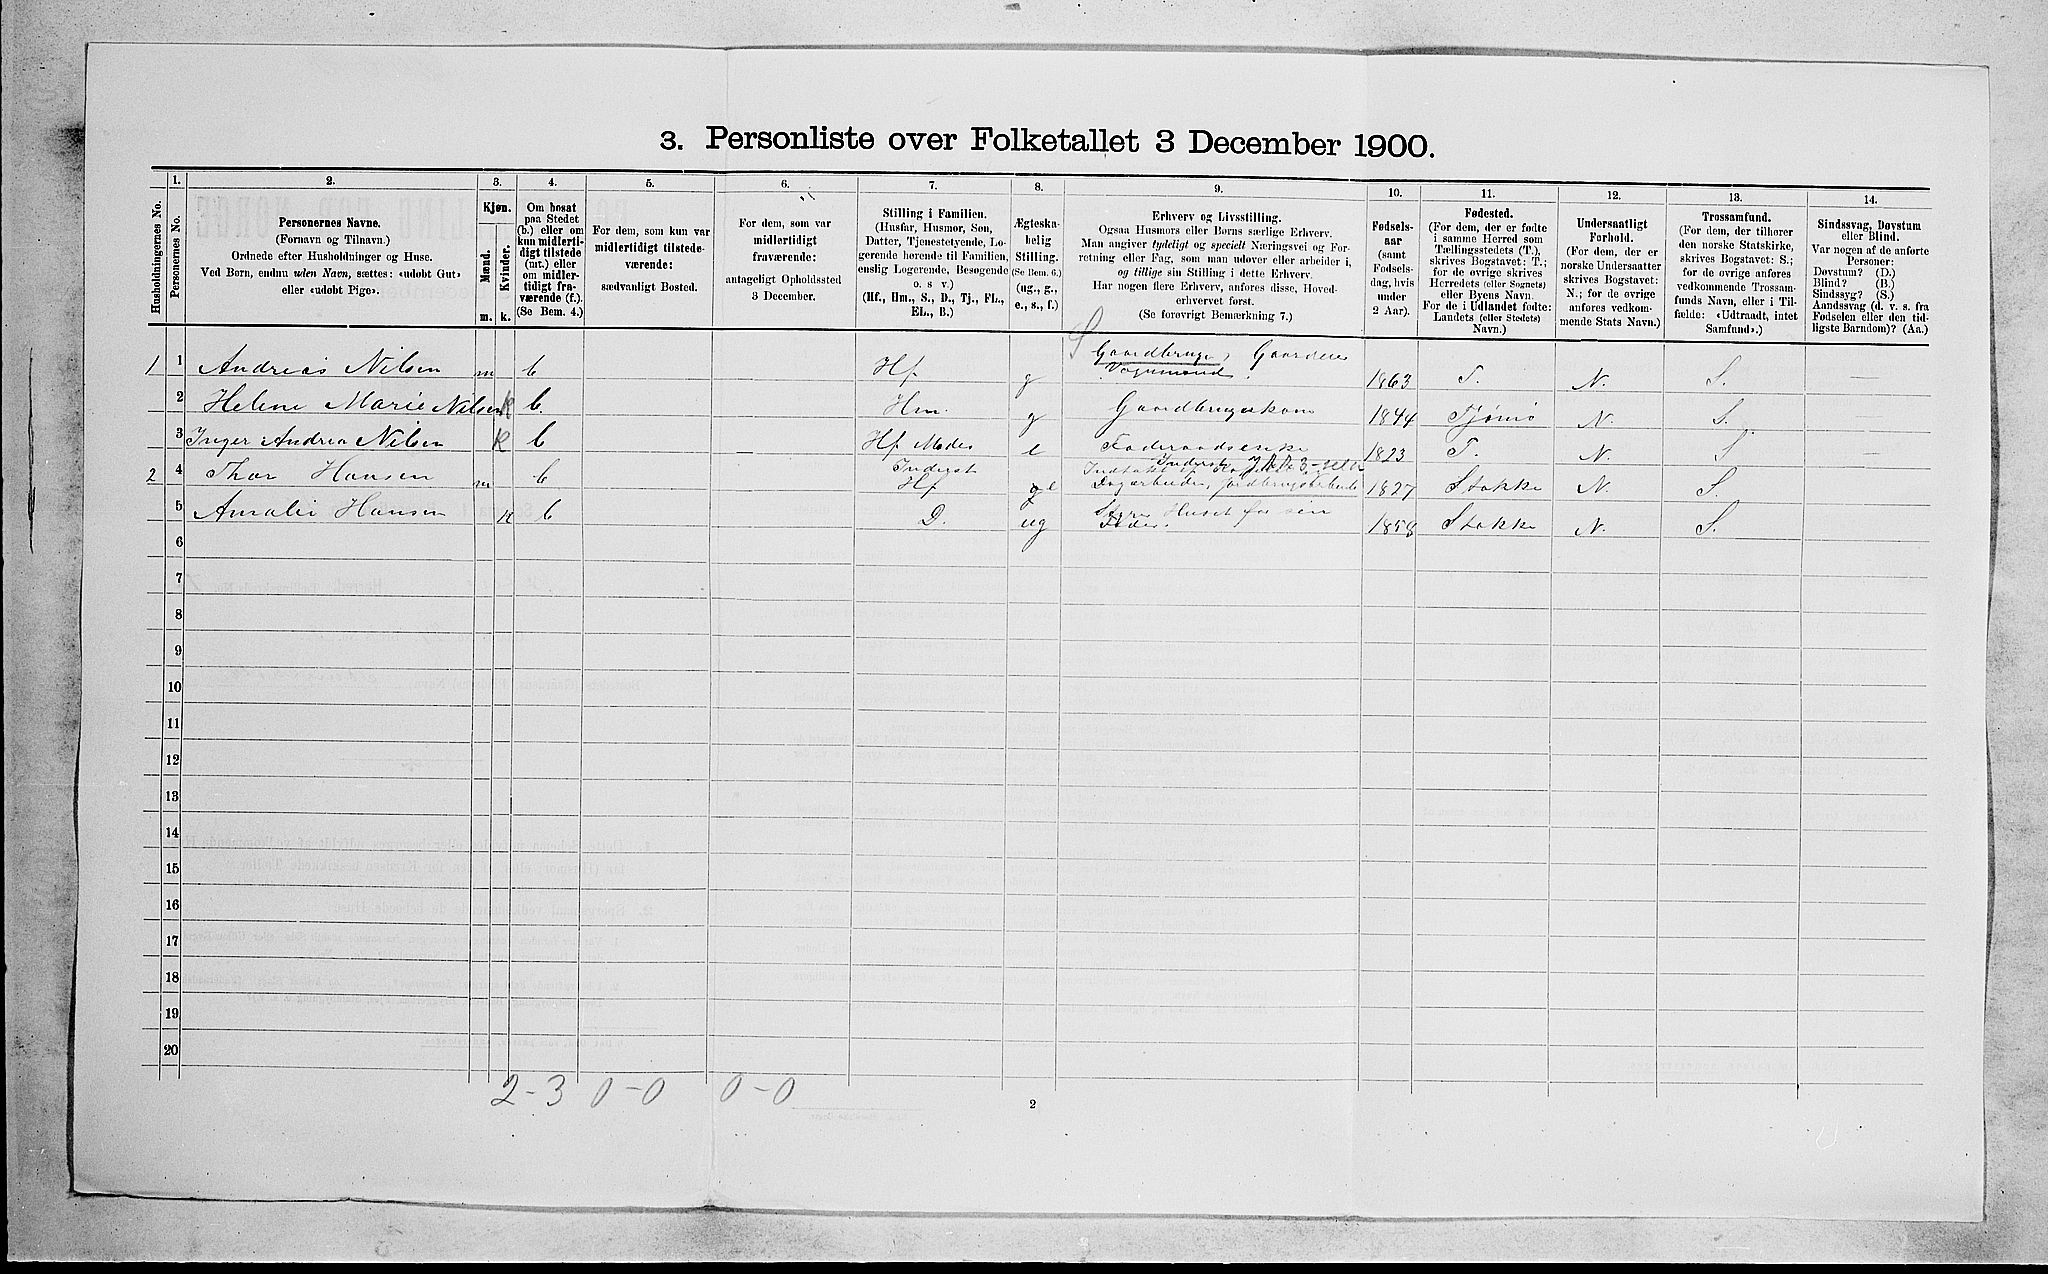 3. Personliste over Folketallet 3 December 1900.
1. 2. 3. 4. 5. 6. 7. 8. 9. 10. 11. 12. 13. 14.
Husholdningernes No.
Personernes No.
Personernes Navne.
(Fornavn og Tilnavn.)
Ordnede efter Husholdninger og Huse.
Ved Børn, endnu uden Navn, sættes: «udøbt Gut»
eller «udøbt Pige».
Kjøn.
Mænd.
Kvinder.
m. k.
Om bosat
paa Stedet
(b.) eller om
kun midlerti-
digt tilstede
(mt.) eller
om midler-
tidigt fra-
værende (f.).
(Se Bem. 4.)
For dem, som kun var
midlertidigt tilstede-
værende:
sædvanligt Bosted.
For dem, som var
midlertidigt
fraværende:
antageligt Opholdssted
3 December.
Stilling i Familien.
(Husfar, Husmor, Søn,
Datter, Tjenestetyende, Lo-
gerende hørende til Familien,
enslig Logerende, Besøgende
o. s v.)
(Hf., Hm., S., D., Tj., FL.,
EL., B.)
Ægteska-
belig
Stilling.
(Se Bem. 6.)
(ug., g.,
e., s., f.)
Erhverv og Livsstilling.
Ogsaa Husmors eller Børns særlige Erhverv.
Man angiver tydeligt og specielt Næringsvei og For-
retning eller Fag, som man udøver eller arbeider i,
og tillige sin Stilling i dette Erhverv.
Har nogen flere Erhverv, anføres disse, Hoved-
erhvervet først.
(Se forøvrigt Bemærkning 7.)
Fødsels-
aar
(samt
Fødsels-
dag, hvis
under
2 Aar).
Fødested.
(For dem, der er fødte
i samme Herred som
Tællingsstedets (T.),
skrives Bogstavet: T.;
for de øvrige skrives
Herredets (eller Sognets)
eller Byens Navn.
For de i Udlandet fødte:
Landets (eller Stedets)
Navn.)
Undersaatligt
Forhold.
(For dem, der er
norske Undersaatter
skrives Bogstavet:
N.; for de øvrige
anføres vedkom-
mende Stats Navn.)
Trossamfund.
(For dem, der tilhører
den norske Statskirke,
skrives Bogstavet: S.;
for de øvrige anføres
vedkommende Trossam-
funds Navn, eller i Til-
fælde: «Udtraadt, intet
Samfund».)
Sindssvag, Døvstum
eller Blind.
Var nogen af de anførte
Personer:
Døvstum? (D.)
Blind? (B.)
Sindssyg? (S.)
Aandssvag (d. v. s. fra
Fødselen eller den tid-
ligste Barndom)? (Aa.)
1 1 Andreas Nilsen m b Hf g Gaardbruger, Gaardeier 1863 T. N. S. —
2 Helene Marie Nilsen k b. Hm. g Gaardbrugerkone 1844 Tjømø N. S. —
3 Inger Andrea Nilsen k b Hf Moder e Føderaadsenke 1823 T. N. S —
2 4 Thor Hansen m b Inderst Hf e Dagarbeider, 1827 Stokke N. S.
5 Amalie Hansen k b D. ug Styrer Huset for sin Fader. 1858 Stokke N. S.
6
7
8
9
10
11
12
13
14
15
16
17
18
19
20
2-3 0-0 0-0
2